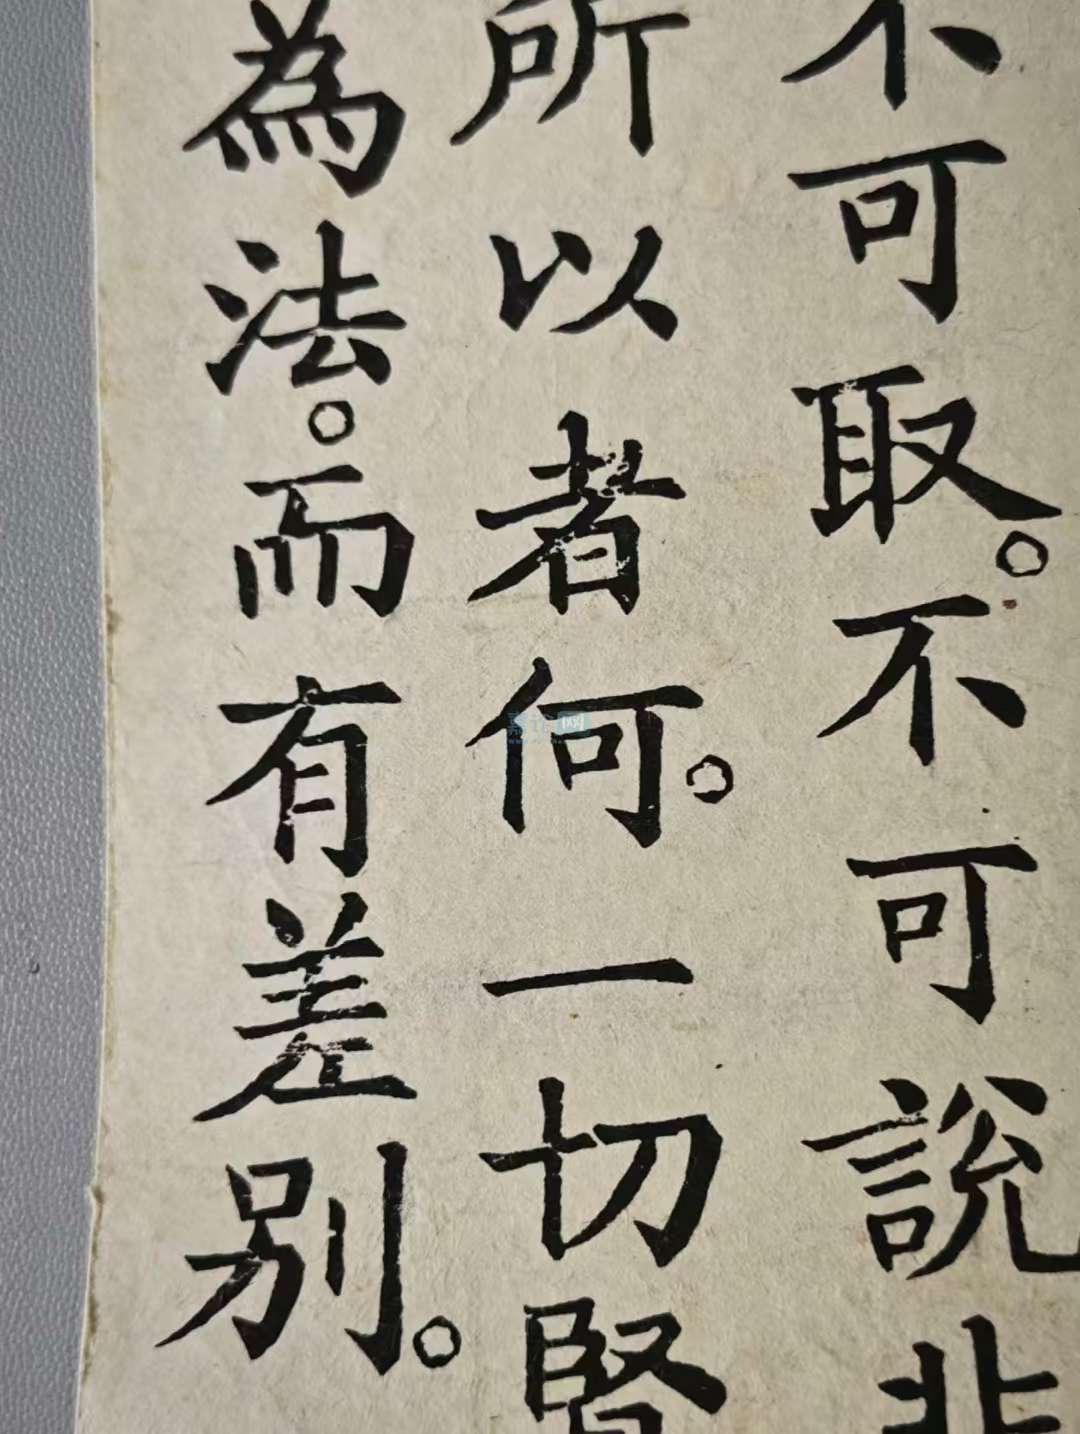 不可取。不可說非
所以者何。一切賢
為法。而有差別。